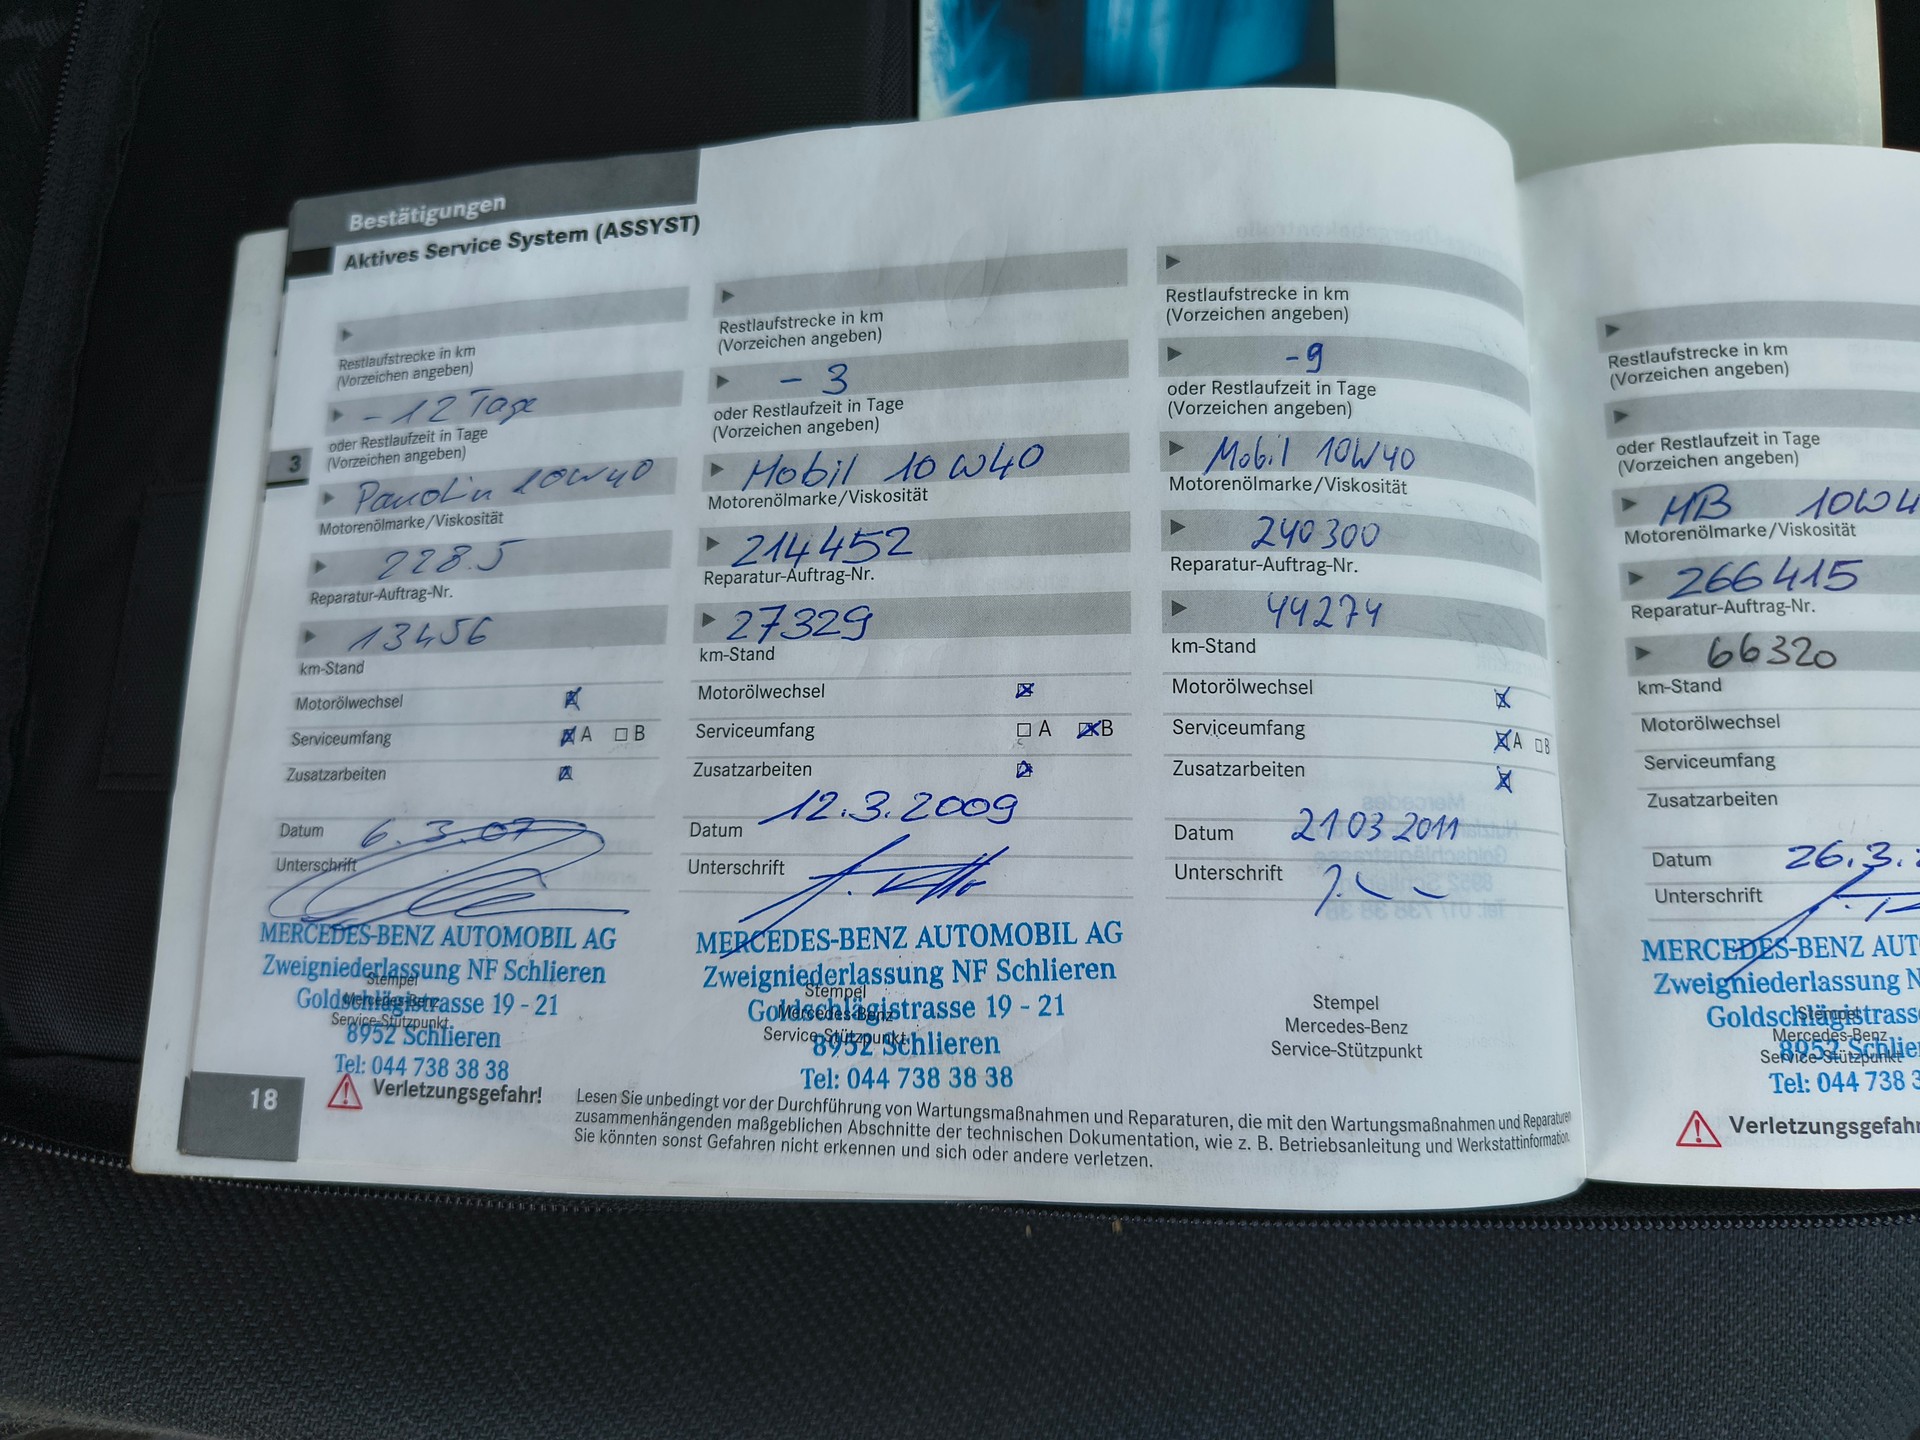 Bestätigungen
Aktives Service System (ASSYST)
3
Restlaufstrecke in km
(Vorzeichen angeben)
- 12 Tage
oder Restlaufzeit in Tage
(Vorzeichen angeben)
Panolin 10W40
Motorenölmarke/Viskosität
228.5
Reparatur-Auftrag-Nr.
13456
km-Stand
Motorölwechsel
Serviceumfang A B
Zusatzarbeiten
Datum 6.3.07
Unterschrift
MERCEDES-BENZ AUTOMOBIL AG
Zweigniederlassung NF Schlieren
Stempel
Goldschlägistrasse 19 - 21
Mercedes-Benz
Service-Stützpunkt
8952 Schlieren
Tel: 044 738 38 38
Restlaufstrecke in km
(Vorzeichen angeben)
- 3
oder Restlaufzeit in Tage
(Vorzeichen angeben)
Mobil 10W40
Motorenölmarke/Viskosität
214452
Reparatur-Auftrag-Nr.
27329
km-Stand
Motorölwechsel
Serviceumfang A B
Zusatzarbeiten
Datum 12.3.2009
Unterschrift
MERCEDES-BENZ AUTOMOBIL AG
Zweigniederlassung NF Schlieren
Stempel
Goldschlägistrasse 19 - 21
Mercedes-Benz
Service-Stützpunkt
8952 Schlieren
Tel: 044 738 38 38
Restlaufstrecke in km
(Vorzeichen angeben)
-9
oder Restlaufzeit in Tage
(Vorzeichen angeben)
Mobil 10W40
Motorenölmarke/Viskosität
240300
Reparatur-Auftrag-Nr.
44274
km-Stand
Motorölwechsel
Serviceumfang A B
Zusatzarbeiten
Datum 21 03 2011
Unterschrift
Stempel
Mercedes-Benz
Service-Stützpunkt
18
Verletzungsgefahr!
Lesen Sie unbedingt vor der Durchführung von Wartungsmaßnahmen und Reparaturen, die mit den Wartungsmaßnahmen und Reparaturen
zusammenhängenden maßgeblichen Abschnitte der technischen Dokumentation, wie z. B. Betriebsanleitung und Werkstattinformation.
Sie könnten sonst Gefahren nicht erkennen und sich oder andere verletzen.
Restlaufstrecke in km
(Vorzeichen angeben)
oder Restlaufzeit in Tage
(Vorzeichen angeben)
MB 10W4
Motorenölmarke/Viskosität
266415
Reparatur-Auftrag-Nr.
66320
km-Stand
Motorölwechsel
Serviceumfang
Zusatzarbeiten
Datum 26.3.
Unterschrift
MERCEDES-BENZ AUT
Zweigniederlassung N
Stempel
Goldschlägistrass
Mercedes-Benz
Service-Stützpunkt
8952 Schlie
Tel: 044 738 3
Verletzungsgefahr